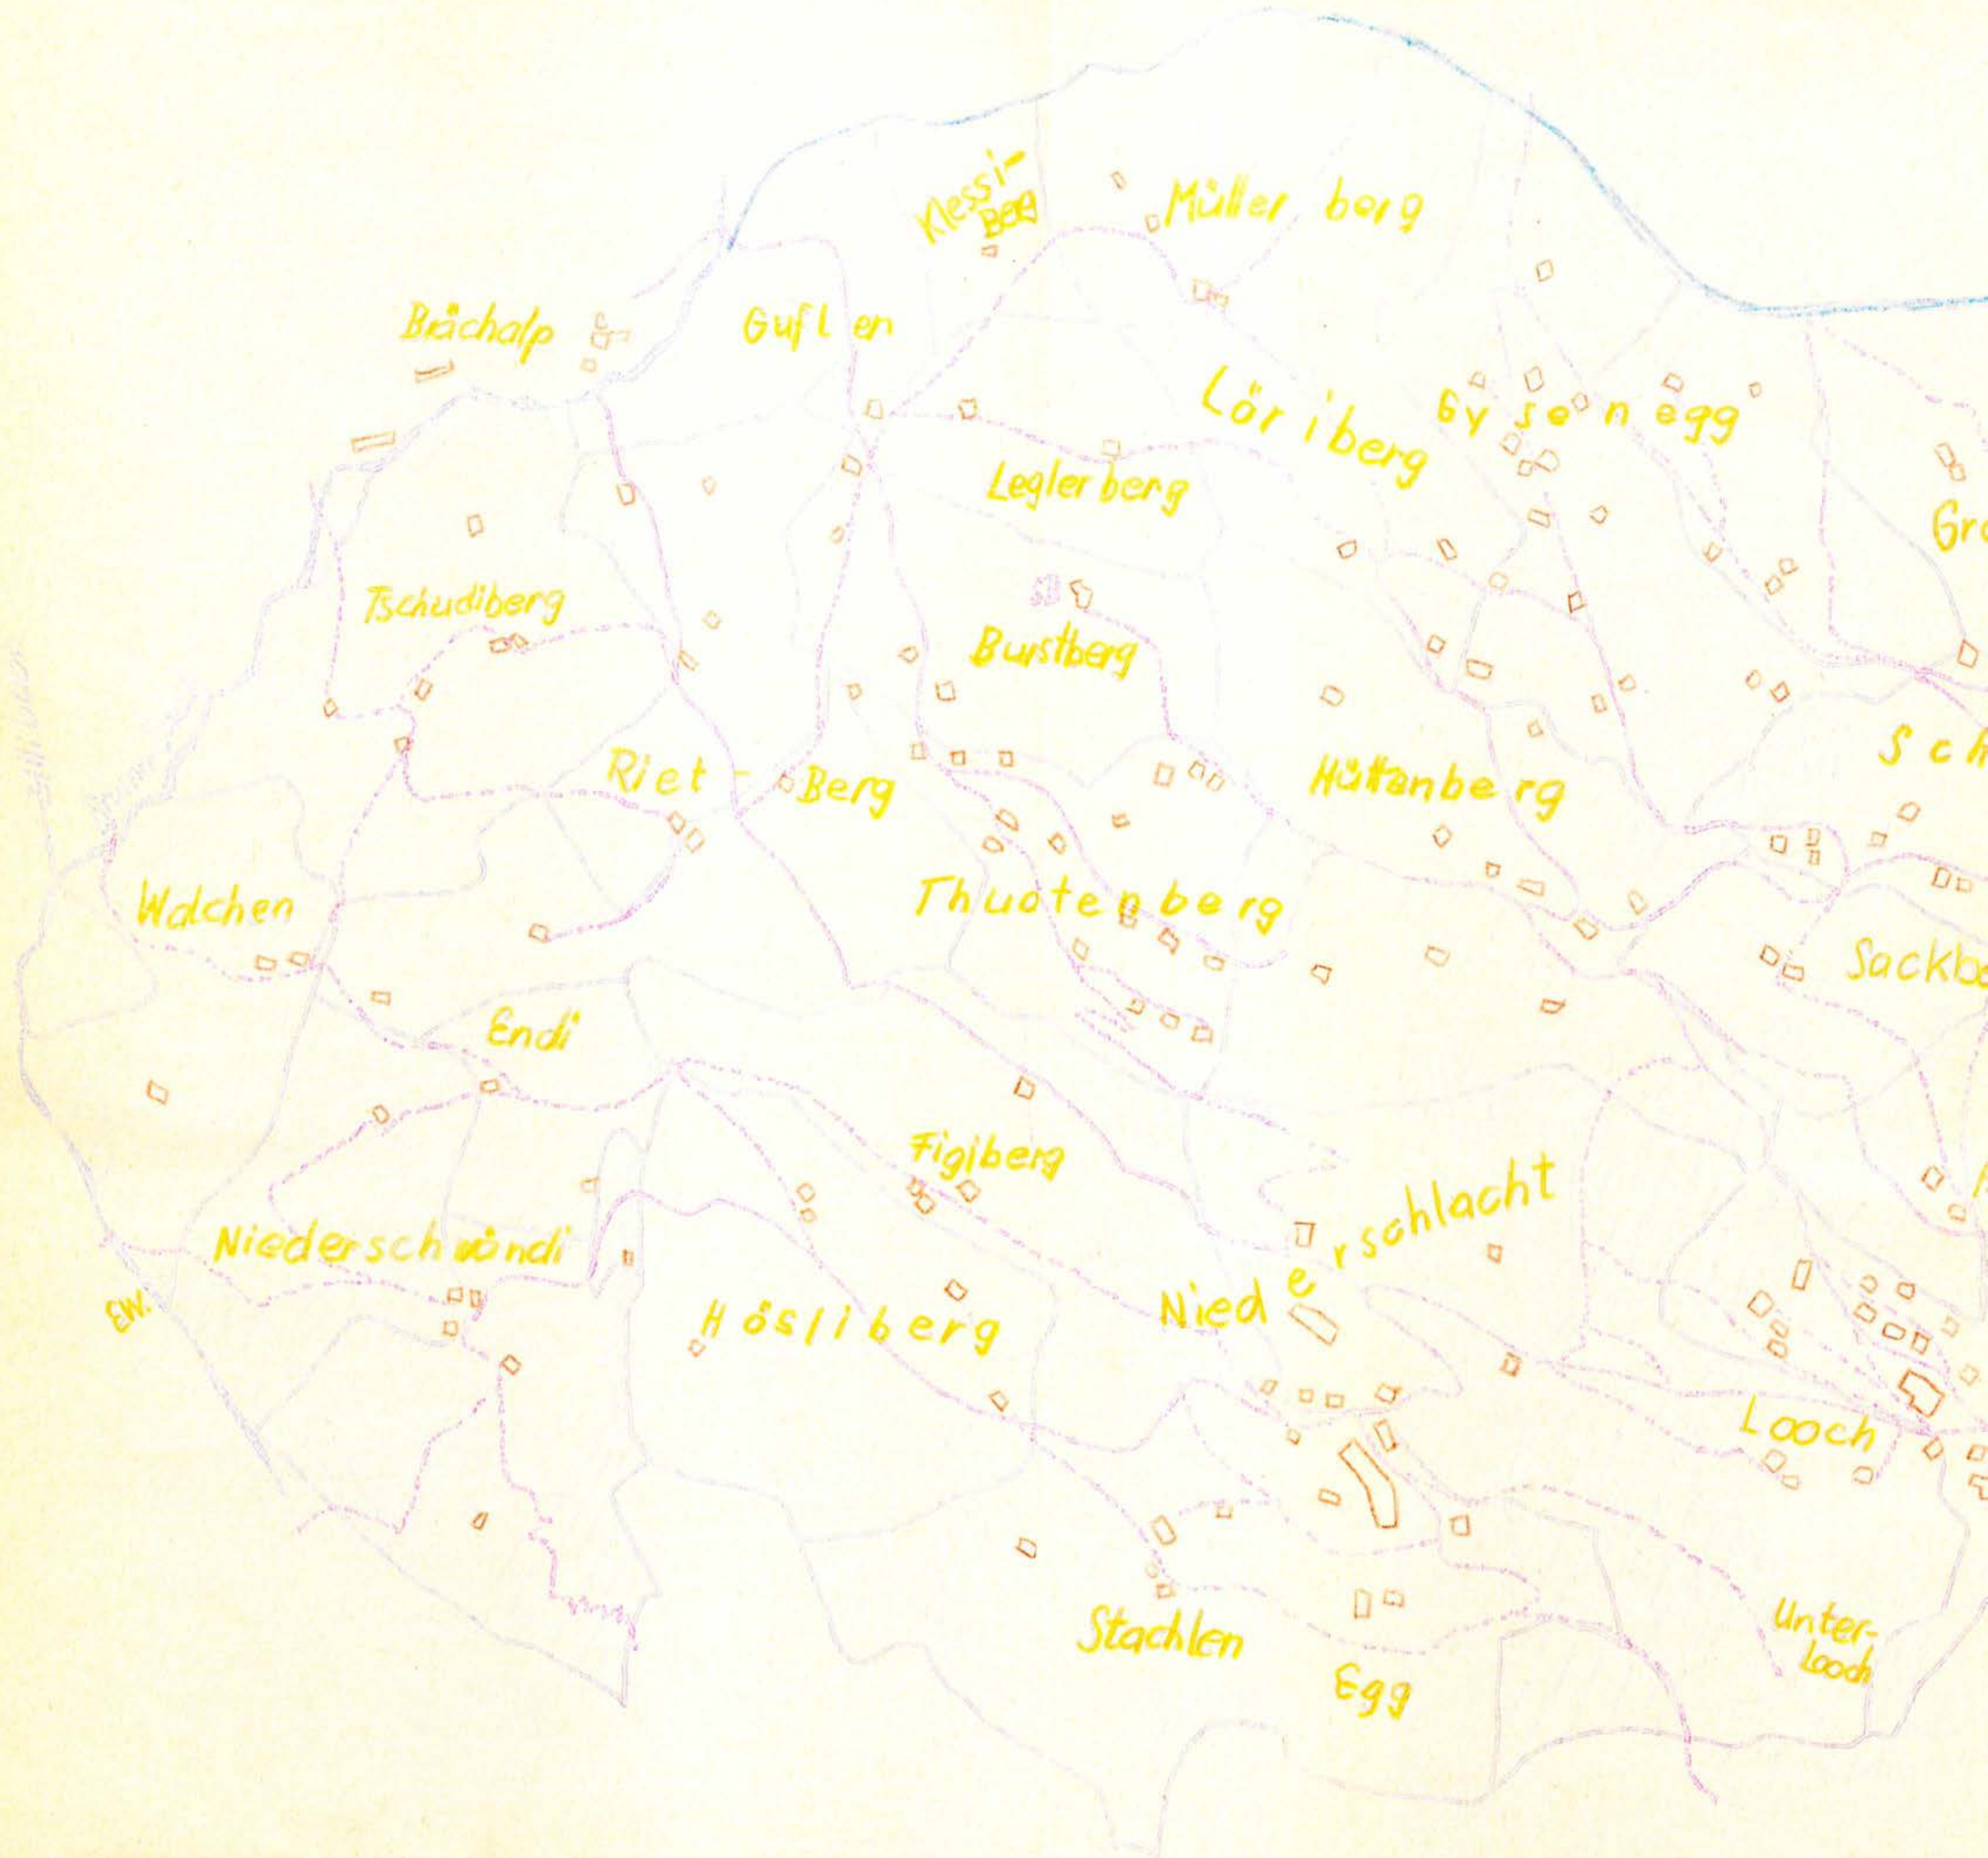 Klessi-
Berg
Müllerberg
Bächalp
Guflen
Löriberg
Gysenegg
Leglerberg
Tschudiberg
Burstberg
Riet-Berg
Hüttenberg
Thuotenberg
Walchen
Endi
Figiberg
Niederschlacht
Niederschwändi
EW.
Hösliberg
Looch
Stachlen
Unter-
Looch
Egg